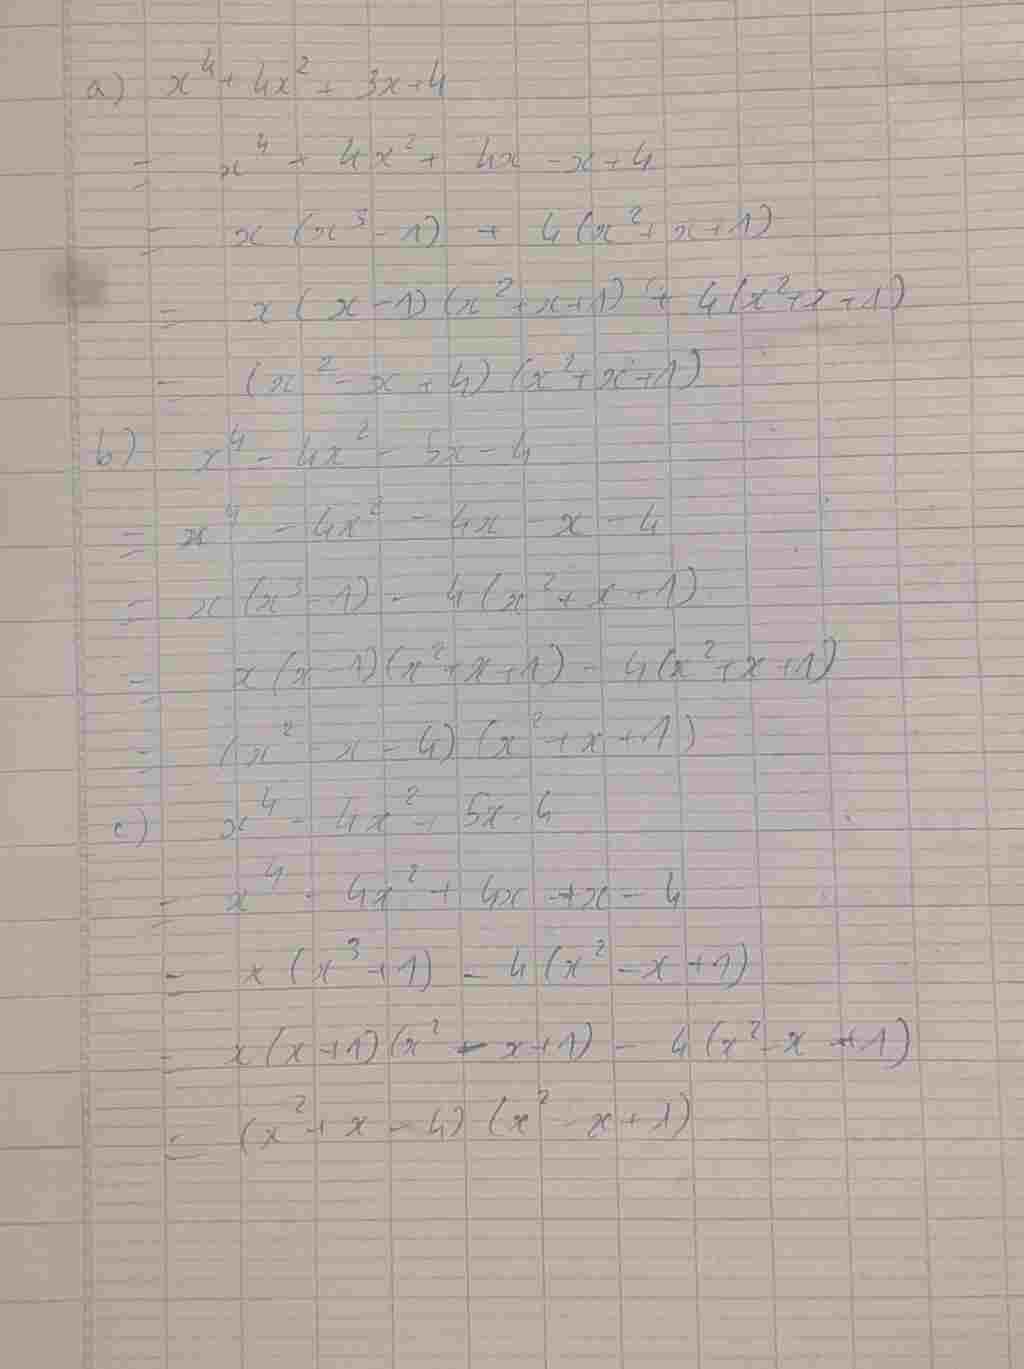 a) x⁴ + 4x² + 3x + 4
= x⁴ + 4x² + 4x - x + 4
= x (x³ - 1) + 4(x² + x + 1)
= x (x - 1)(x² + x + 1) + 4(x² + x + 1)
= (x² - x + 4)(x² + x + 1)
b) x⁴ - 4x² - 5x - 4
= x⁴ - 4x² - 4x - x - 4
= x (x³ - 1) - 4(x² + x + 1)
= x (x - 1)(x² + x + 1) - 4(x² + x + 1)
= (x² - x - 4)(x² + x + 1)
c) x⁴ - 4x² + 5x - 4
= x⁴ - 4x² + 4x + x - 4
= x (x³ + 1) - 4(x² - x + 1)
= x (x + 1)(x² - x + 1) - 4(x² - x + 1)
= (x² + x - 4)(x² - x + 1)